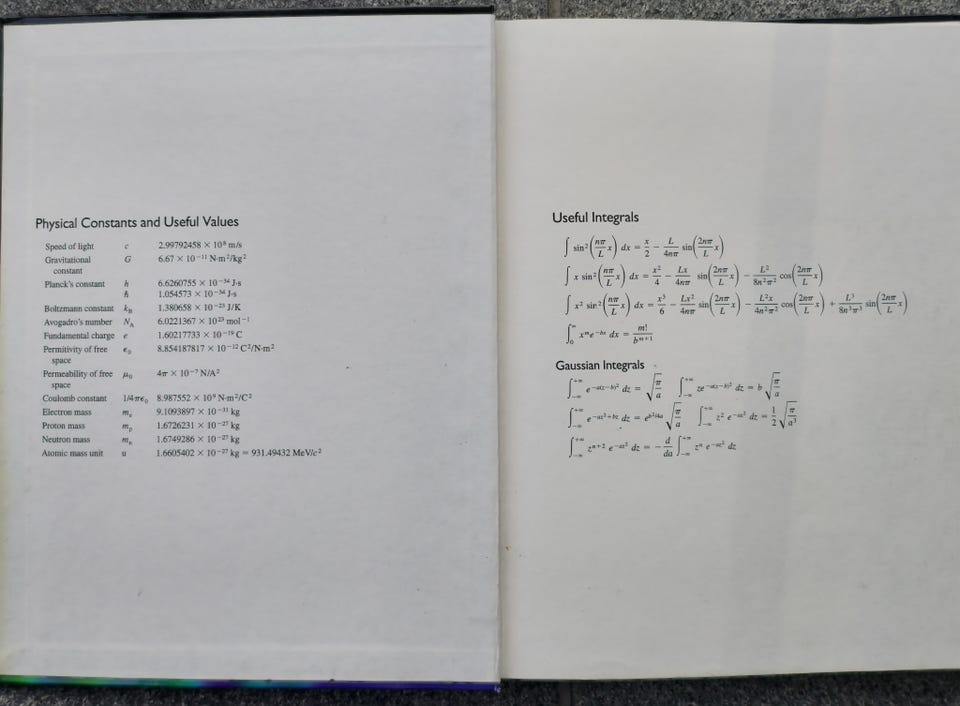 Physical Constants and Useful Values
Speed of light c 2.99792458 × 10⁸ m/s
Gravitational G 6.67 × 10⁻¹¹ N·m²/kg²
constant
Planck's constant h 6.6260755 × 10⁻³⁴ J·s
ℏ 1.054573 × 10⁻³⁴ J·s
Boltzmann constant k_B 1.380658 × 10⁻²³ J/K
Avogadro's number N_A 6.0221367 × 10²³ mol⁻¹
Fundamental charge e 1.60217733 × 10⁻¹⁹ C
Permitivity of free ε₀ 8.854187817 × 10⁻¹² C²/N·m²
space
Permeability of free μ₀ 4π × 10⁻⁷ N/A²
space
Coulomb constant 1/4πε₀ 8.987552 × 10⁹ N·m²/C²
Electron mass mₑ 9.1093897 × 10⁻³¹ kg
Proton mass m_p 1.6726231 × 10⁻²⁷ kg
Neutron mass m_n 1.6749286 × 10⁻²⁷ kg
Atomic mass unit u 1.6605402 × 10⁻²⁷ kg = 931.49432 MeV/c²
Useful Integrals
∫ sin²(nπ/L x) dx = x/2 − L/4nπ sin(2nπ/L x)
∫ x sin²(nπ/L x) dx = x²/4 − Lx/4nπ sin(2nπ/L x) − L²/8n²π² cos(2nπ/L x)
∫ x² sin²(nπ/L x) dx = x³/6 − Lx²/4nπ sin(2nπ/L x) − L²x/4n²π² cos(2nπ/L x) + L³/8n³π³ sin(2nπ/L x)
∫₀^∞ xᵐe^(−bx) dx = m!/bᵐ⁺¹
Gaussian Integrals
∫₋∞^(+∞) e^(−a(z−b)²) dz = √(π/a) ∫₋∞^(+∞) ze^(−a(z−b)²) dz = b √(π/a)
∫₋∞^(+∞) e^(−az²+bz) dz = e^(b²/4a) √(π/a) ∫₋∞^(+∞) z² e^(−az²) dz = 1/2 √(π/a³)
∫₋∞^(+∞) zⁿ⁺² e^(−az²) dz = − d/da ∫₋∞^(+∞) zⁿ e^(−az²) dz